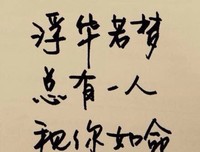 浮华若梦
总有一人
视你如命